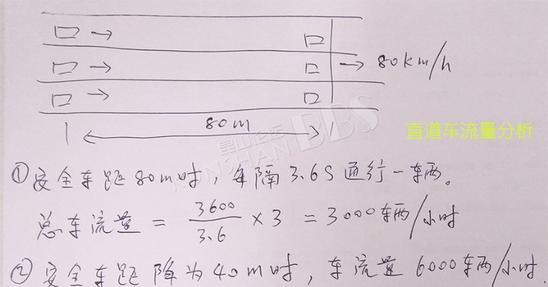 80km/h
80m
直道车流量分析
①安全车距80m时，每隔3.6S通行一车辆。
总车流量 = 3600/3.6 ×3 = 3000车辆/小时
②安全车距降为40m时，车流量6000车辆/小时.